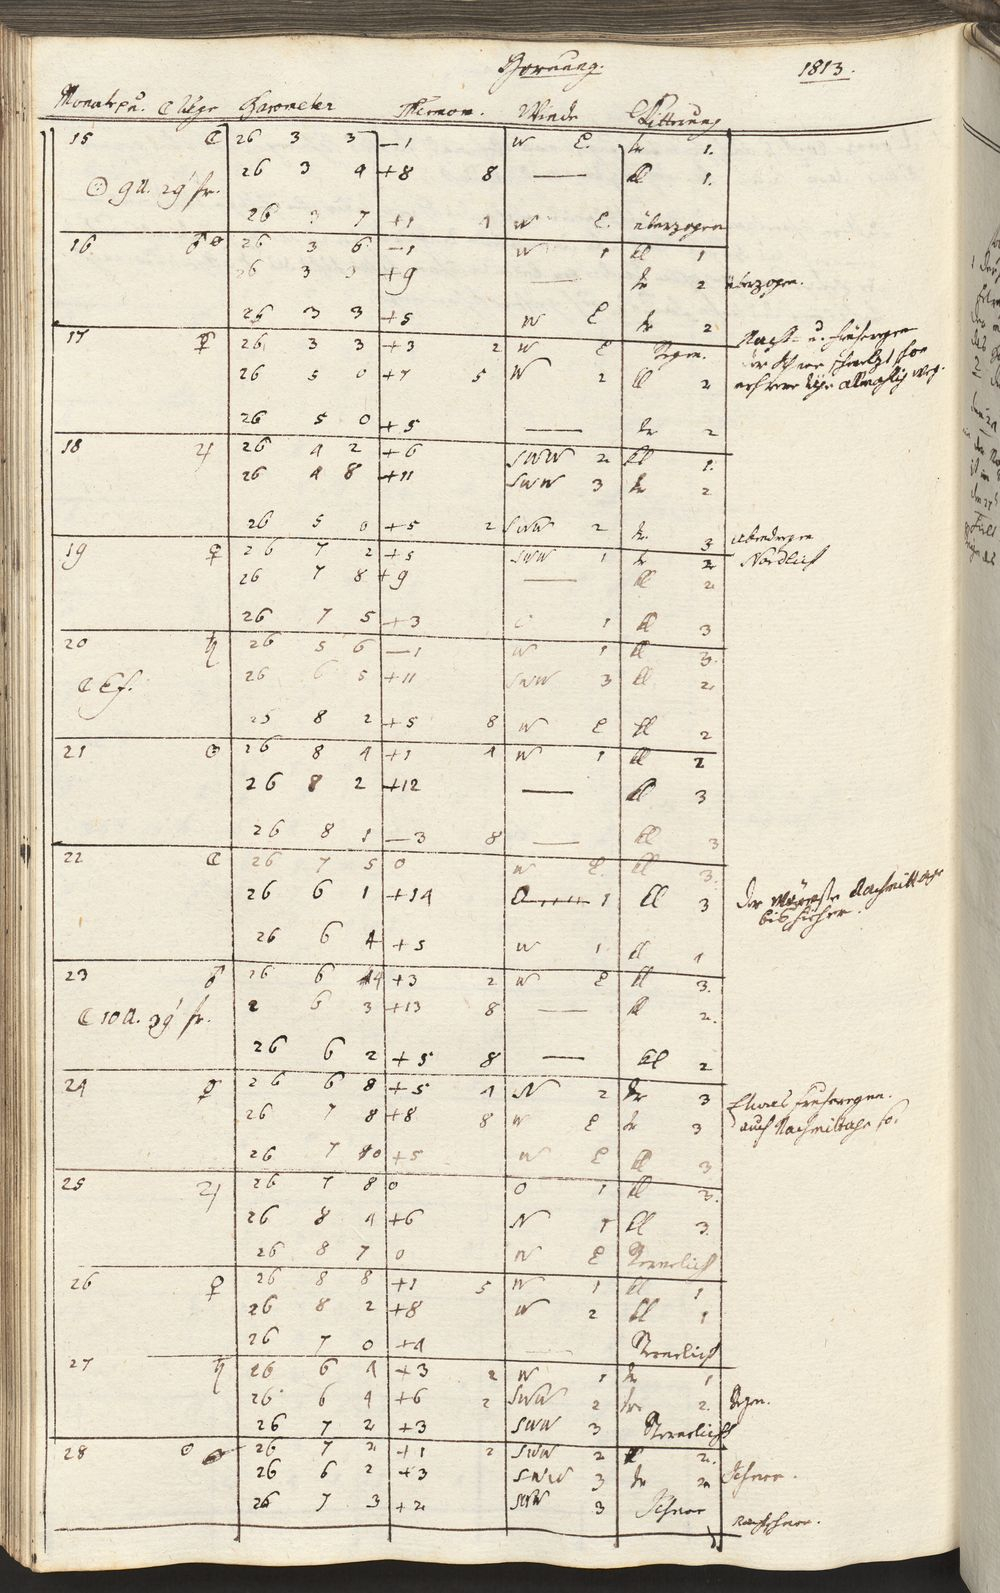 Hornung. 1813.
Monatstu. ☾ Barometer Thermom. Winde Witterung
15 ☾ 26 3 3 —1 W E. tr 1.
26 3 4 +8 8 — kl 1.
☉ 9 U. 29' fr.
26 3 7 +1 4 W E. überzogen
16 ♂ 26 3 6 —1 W 1 kl 1
26 3 3 +9 — tr 2 überzogen.
26 3 3 +5 W E tr 2
17 ☿ 26 3 3 +3 2 W E Regen. Nacht- u. frühregen
26 5 0 +7 5 W 2 kl 2 der Schnee schmelzt schon
mehrere Tage allmählig weg.
26 5 0 +5 — tr 2
18 ♃ 26 4 2 +6 SWW 2 kl 1.
26 4 8 +11 SWW 3 tr 2
26 5 0 +5 2 SWW 2 tr. 3 Abendregen
19 ♀ 26 7 2 +5 SWW 1 tr 2 Nördlich
26 7 8 +9 — kl 2.
26 7 5 +3 1 kl 3
20 ♄ 26 5 6 —1 W 1 kl 3.
☾ Ef. 26 6 5 +11 SWW 3 kl 2.
25 8 2 +5 8 W E kl 2
21 ☉ 26 8 4 +1 4 W 1 kl 2
26 8 2 +12 — kl 3
26 8 1 —3 8 — kl 3
22 ☾ 26 7 5 0 W E. kl 3.
26 6 1 +14 O 1 kl 3 Der wärmste Nachmittag
bis hieher.
26 6 4 +5 W 1 kl 1
23 ♂ 26 6 4 +3 2 W E kl 3.
☾ 10 U. 39' fr. 2 6 3 +13 8 — kl 2.
26 6 2 +5 8 — kl 2
24 ☿ 26 6 8 +5 4 N 2 tr 3 Etwas frühregen.
26 7 8 +8 8 W E tr 3 auch Nachmittags so.
26 7 10 +5 W E kl 3
25 ♃ 26 7 8 0 O 1 kl 3.
26 8 4 +6 N 1 kl 3.
26 8 7 0 W E Sternlicht
26 ♀ 26 8 8 +1 5 W 1 kl 1
26 8 2 +8 W 2 kl 1
26 7 0 +4 — Sternlicht
27 ♄ 26 6 4 +3 2 W 1 tr 1
26 6 4 +6 2 SWW 2 tr 2. Regen.
26 7 2 +3 SWW 3 Sternlicht
28 ☉ 26 7 2 +1 2 SWW 2 kl 2.
26 6 2 +3 SWW 3 tr 2 Schnee.
26 7 3 +2 SWW 3 Schnee
Nachtschnee.